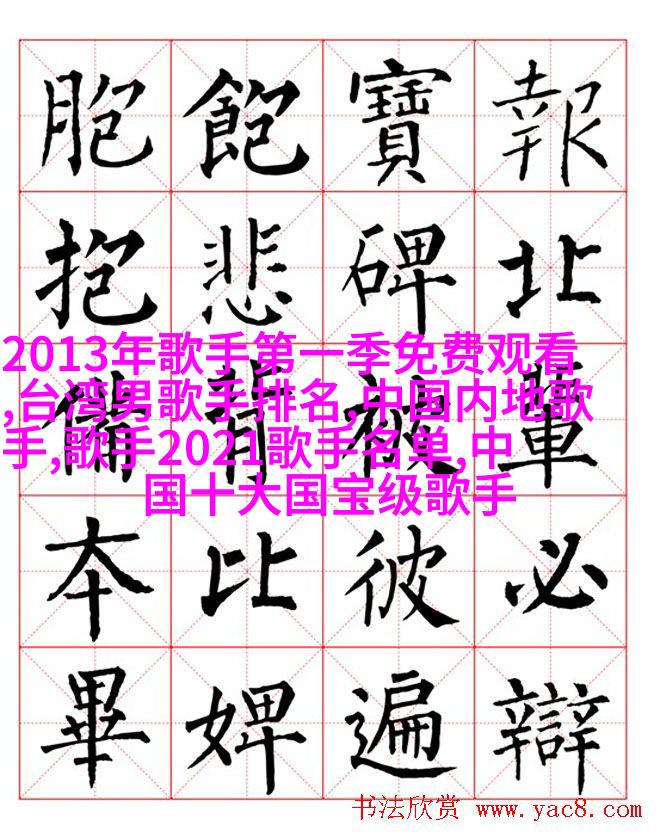 胞飽寶報
抱悲碑北
2013年歌手第一季免费观看
,台湾男歌手排名,中国内地歌
手,歌手2021歌手名单,中
国十大国宝级歌手
備背被輩
本比彼必
畢婢遍辯
书法欣赏 www.yac8.com